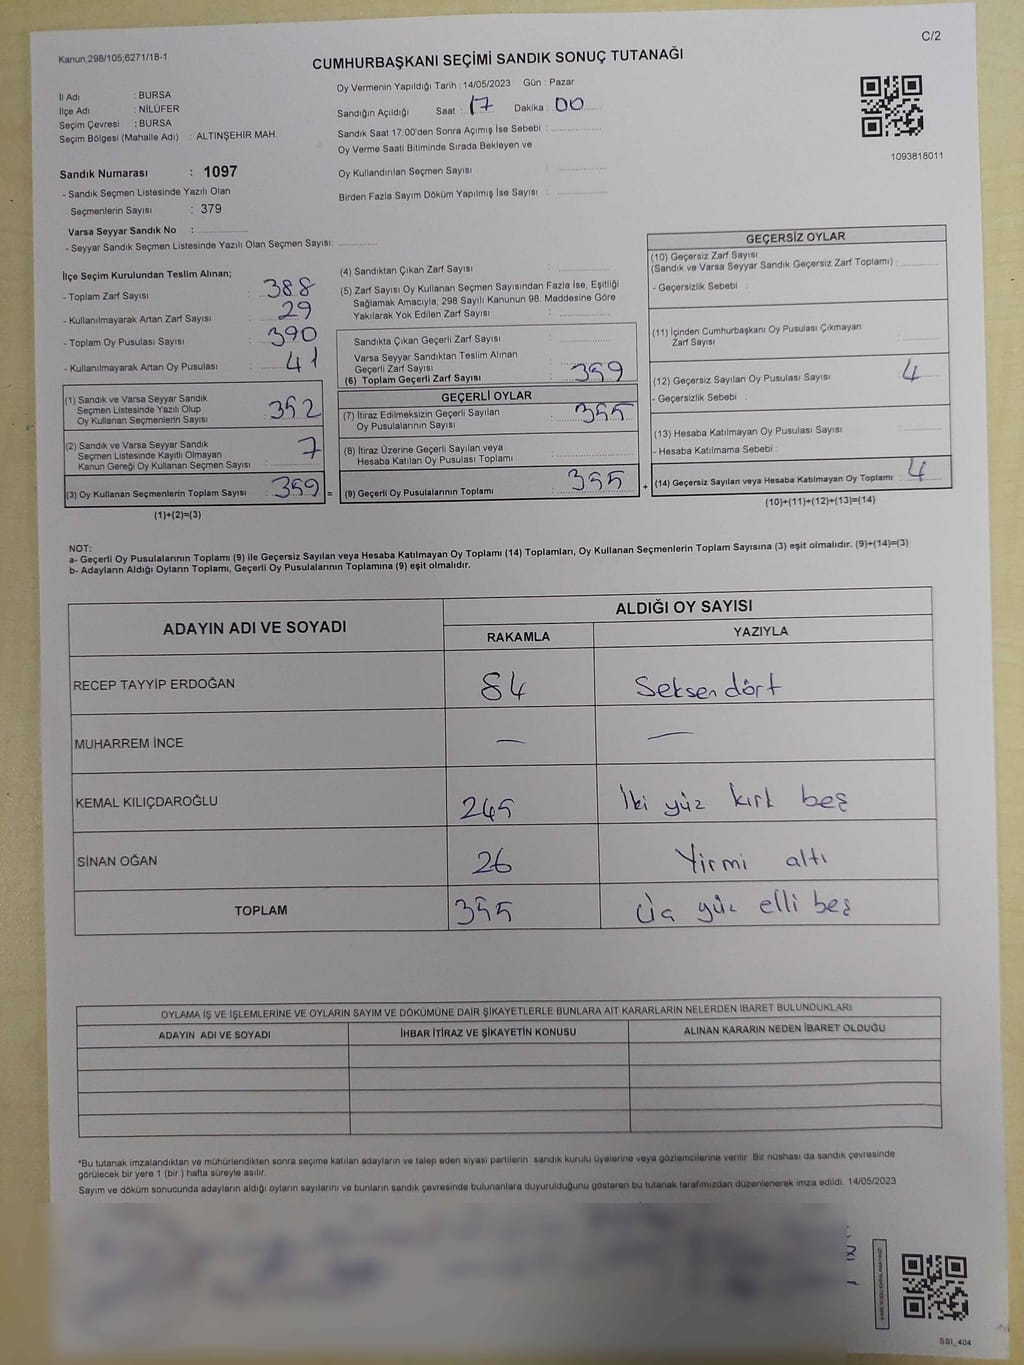 C/2
Kanun,298/105;6271/18-1
CUMHURBAŞKANI SEÇİMİ SANDIK SONUÇ TUTANAĞI
İl Adı : BURSA
İlçe Adı : NİLÜFER
Seçim Çevresi : BURSA
Seçim Bölgesi (Mahalle Adı) : ALTINŞEHİR MAH.
Sandık Numarası : 1097
- Sandık Seçmen Listesinde Yazılı Olan
Seçmenlerin Sayısı : 379
Varsa Seyyar Sandık No :
- Seyyar Sandık Seçmen Listesinde Yazılı Olan Seçmen Sayısı:
Oy Vermenin Yapıldığı Tarih : 14/05/2023 Gün : Pazar
Sandığın Açıldığı Saat : 17 Dakika : 00
Sandık Saat 17:00'den Sonra Açımış İse Sebebi :
Oy Verme Saati Bitiminde Sırada Bekleyen ve
Oy Kullandırılan Seçmen Sayısı :
Birden Fazla Sayım Döküm Yapılmış İse Sayısı :
1093818011
İlçe Seçim Kurulundan Teslim Alınan;
- Toplam Zarf Sayısı : 388
- Kullanılmayarak Artan Zarf Sayısı : 29
- Toplam Oy Pusulası Sayısı : 390
- Kullanılmayarak Artan Oy Pusulası : 41
(1) Sandık ve Varsa Seyyar Sandık
Seçmen Listesinde Yazılı Olup
Oy Kullanan Seçmenlerin Sayısı : 352
(2) Sandık ve Varsa Seyyar Sandık
Seçmen Listesinde Kayıtlı Olmayan
Kanun Gereği Oy Kullanan Seçmen Sayısı : 7
(3) Oy Kullanan Seçmenlerin Toplam Sayısı : 359 =
(1)+(2)=(3)
(4) Sandıktan Çıkan Zarf Sayısı :
(5) Zarf Sayısı Oy Kullanan Seçmen Sayısından Fazla İse, Eşitliği
Sağlamak Amacıyla; 298 Sayılı Kanunun 98. Maddesine Göre
Yakılarak Yok Edilen Zarf Sayısı :
Sandıkta Çıkan Geçerli Zarf Sayısı :
Varsa Seyyar Sandıktan Teslim Alınan
Geçerli Zarf Sayısı :
(6) Toplam Geçerli Zarf Sayısı : 359
GEÇERLİ OYLAR
(7) İtiraz Edilmeksizin Geçerli Sayılan
Oy Pusulalarının Sayısı : 355
(8) İtiraz Üzerine Geçerli Sayılan veya
Hesaba Katılan Oy Pusulası Toplamı :
(9) Geçerli Oy Pusulalarının Toplamı : 355 +
GEÇERSİZ OYLAR
(10) Geçersiz Zarf Sayısı
(Sandık ve Varsa Seyyar Sandık Geçersiz Zarf Toplamı) :
- Geçersizlik Sebebi :
(11) İçinden Cumhurbaşkanı Oy Pusulası Çıkmayan
Zarf Sayısı :
(12) Geçersiz Sayılan Oy Pusulası Sayısı : 4
- Geçersizlik Sebebi :
(13) Hesaba Katılmayan Oy Pusulası Sayısı :
- Hesaba Katılmama Sebebi :
(14) Geçersiz Sayılan veya Hesaba Katılmayan Oy Toplamı : 4
(10)+(11)+(12)+(13)=(14)
NOT:
a- Geçerli Oy Pusulalarının Toplamı (9) ile Geçersiz Sayılan veya Hesaba Katılmayan Oy Toplamı (14) Toplamları, Oy Kullanan Seçmenlerin Toplam Sayısına (3) eşit olmalıdır. (9)+(14)=(3)
b- Adayların Aldığı Oyların Toplamı, Geçerli Oy Pusulalarının Toplamına (9) eşit olmalıdır.
ADAYIN ADI VE SOYADI
ALDIĞI OY SAYISI
RAKAMLA YAZIYLA
RECEP TAYYİP ERDOĞAN 84 Seksen dört
MUHARREM İNCE — —
KEMAL KILIÇDAROĞLU 245 İki yüz kırk beş
SİNAN OĞAN 26 Yirmi altı
TOPLAM 355 Üç yüz elli beş
OYLAMA İŞ VE İŞLEMLERİNE VE OYLARIN SAYIM VE DÖKÜMÜNE DAİR ŞİKAYETLERLE BUNLARA AİT KARARLARIN NELERDEN İBARET BULUNDUKLARI
ADAYIN ADI VE SOYADI İHBAR İTİRAZ VE ŞİKAYETİN KONUSU ALINAN KARARIN NEDEN İBARET OLDUĞU
*Bu tutanak imzalandıktan ve mühürlendikten sonra seçime katılan adayların ve talep eden siyasi partilerin sandık kurulu üyelerine veya gözlemcilerine verilir. Bir nüshası da sandık çevresinde
görülecek bir yere 1 (bir ) hafta süreyle asılır.
Sayım ve döküm sonucunda adayların aldığı oyların sayılarını ve bunların sandık çevresinde bulunanlara duyurulduğunu gösteren bu tutanak tarafımızdan düzenlenerek imza edildi. 14/05/2023
SSI_404